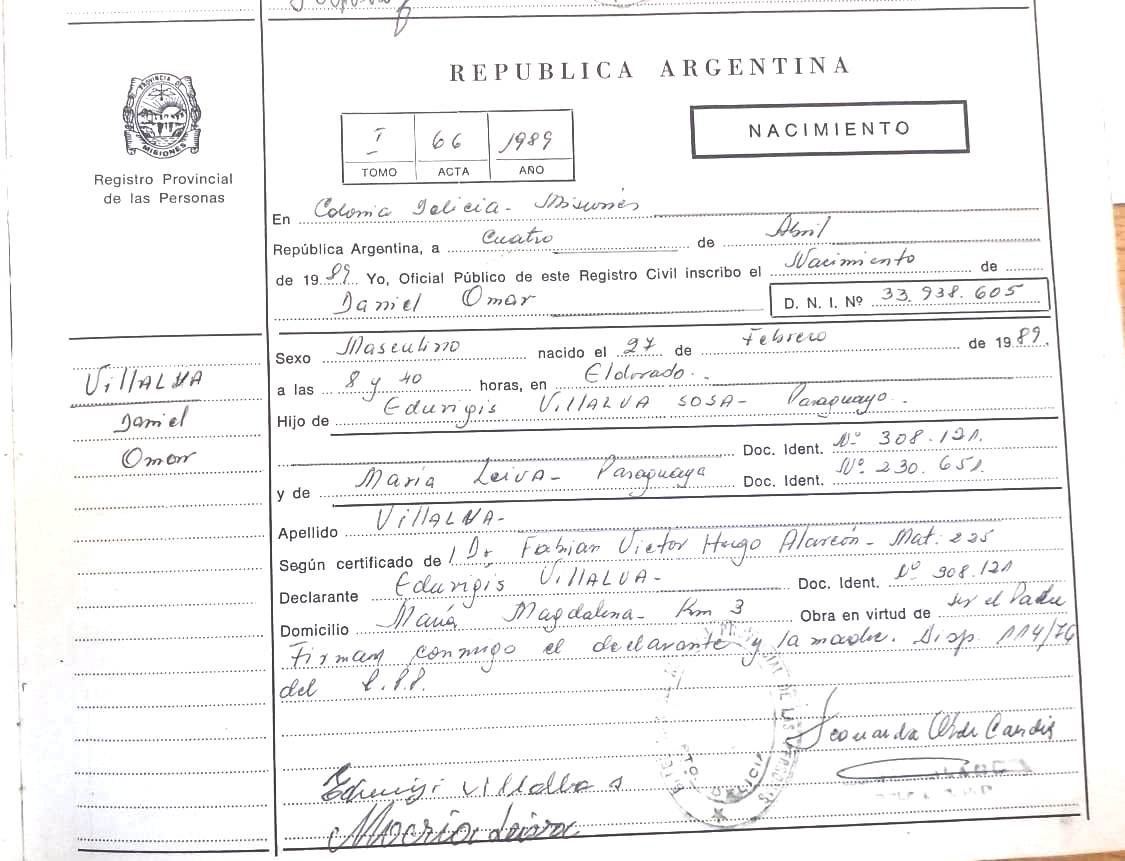 REPUBLICA ARGENTINA
PROVINCIA DE MISIONES
Registro Provincial
de las Personas
I 66 1989
TOMO ACTA AÑO
NACIMIENTO
En Colonia Delicia - Misiones
República Argentina, a Cuatro de Abril
de 1989 Yo, Oficial Público de este Registro Civil inscribo el Nacimiento de
Daniel Omar D. N. I. Nº 33.938.605
Sexo Masculino nacido el 27 de Febrero de 1989.
a las 8 y 40 horas, en Eldorado.
Hijo de Eduvigis VILLALVA SOSA - Paraguayo.
Doc. Ident. Nº 308.121.
y de María Leiva - Paraguaya Doc. Ident. Nº 230.651.
Apellido VILLALVA -
Según certificado de Dr Fabian Victor Hugo Alarcón - Mat: 225
Declarante Eduvigis VILLALVA - Doc. Ident. Nº 308.121
Domicilio María Magdalena - Km 3 Obra en virtud de ser el Padre
Firman conmigo el declarante y la madre. Disp. 114/76
del R.P.P.
VILLALVA
Daniel
Omar
Eduvigi Villalba S
Maria Leiva